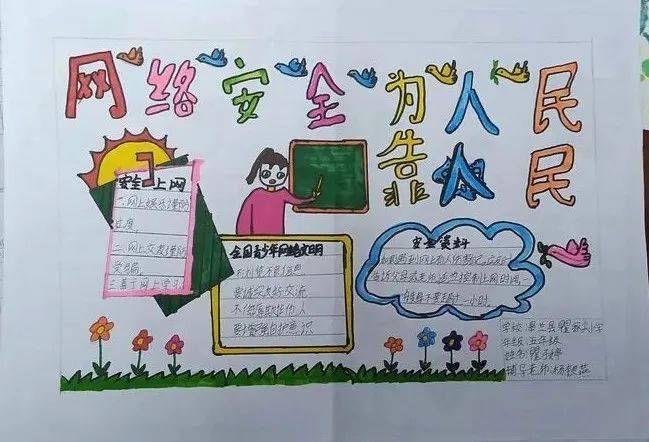 网络安全为人民
靠人民
安全上网
一.网上娱乐谨防
过度.
二.网上交友谨防
受骗.
三.善于网上学习
全国青少年网络文明
不浏览不良信息
要诚实友好交流
不侮辱欺诈他人
要增强自护意识
安全资料
上网时间一
一小时.
学校:
年级:五年级
姓名:
辅导老师:杨